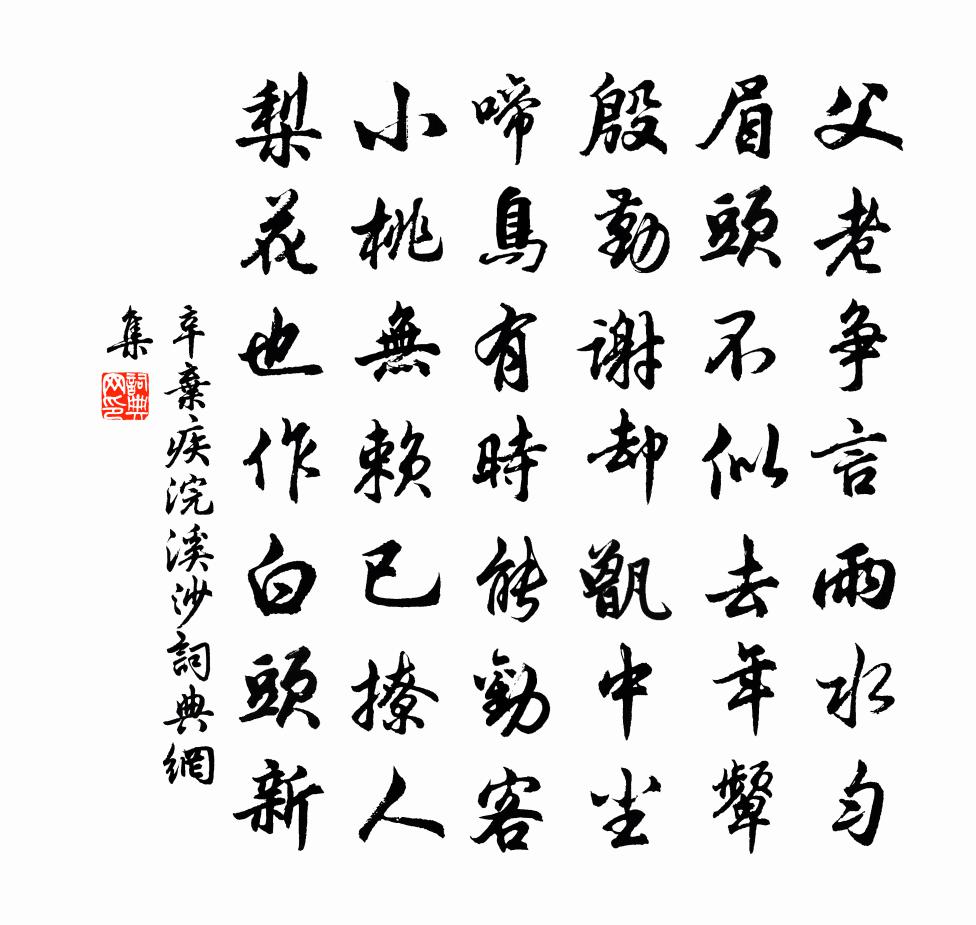 父老爭言雨水勻
眉頭不似去年顰
殷勤謝却甑中尘
啼鳥有時能勸客
小桃無賴已撩人
梨花也作白頭新
辛棄疾浣溪沙詞典網
集
詞典網印